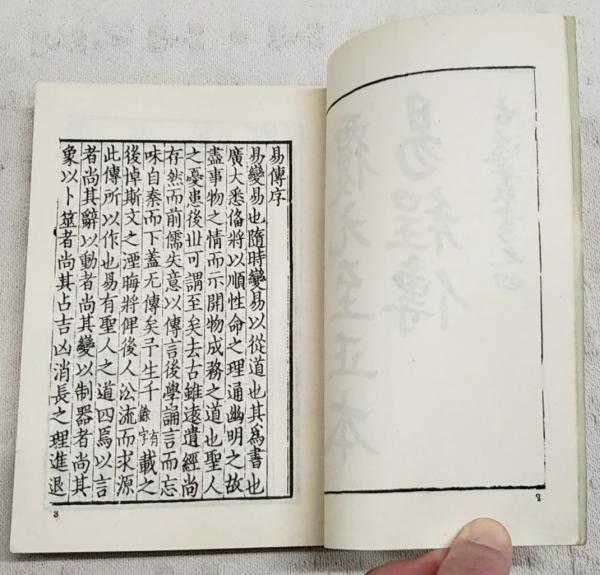 古逸叢書之四
易程傳
覆元至正本
2
易傳序
易變易也隨時變易以從道也其爲書也
廣大悉備將以順性命之理通幽明之故
盡事物之情而示開物成務之道也聖人
之憂患後丗可謂至矣去古雖遠遺經尚
存然而前儒失意以傳言後學誦言而忘
味自秦而下蓋无傳矣予生千一有餘字載之
後悼斯文之湮晦將俾後人㳂流而求源
此傳所以作也易有聖人之道四焉以言
者尚其辭以動者尚其變以制器者尚其
象以卜筮者尚其占吉凶消長之理進退
3